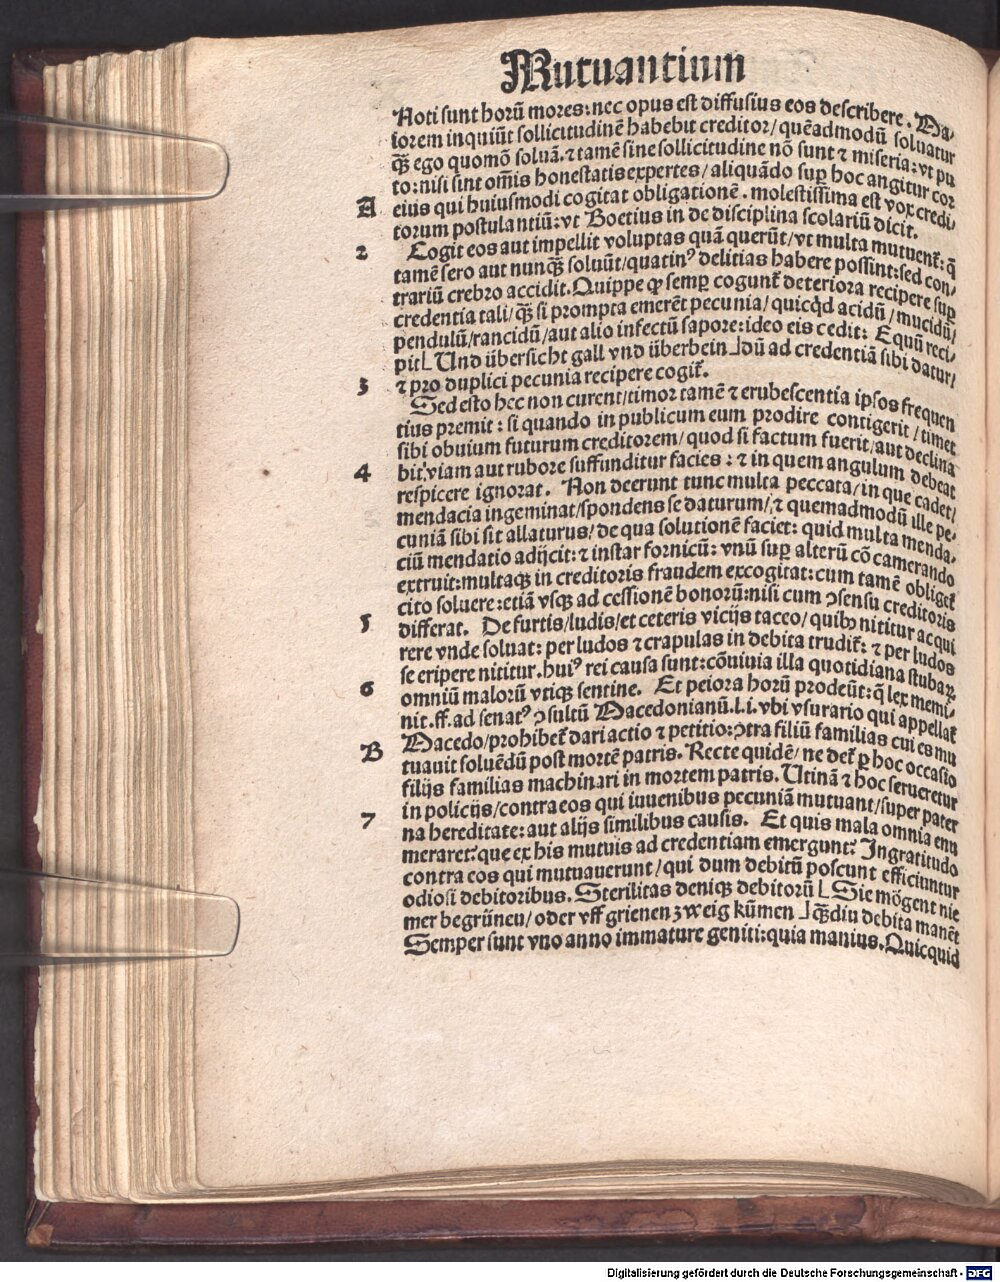 Mutuantium
Noti sunt horū mores: nec opus est diffusius eos describere. Ma-
iorem inquiūt sollicitudinē habebit creditor/ quēadmodū soluatur
q̄ȝ ego quomō soluā. ⁊ tamē sine sollicitudine nō sunt ⁊ miseria: vt pu
to: nisi sint om̄is honestatis expertes/ aliquādo suꝑ hoc angitur cor
A eius qui huiusmodi cogitat obligationē. molestissima est vox credi-
torum postulantiū: vt Boetius in de disciplina scolariū dicit.
2 Cogit eos aut impellit voluptas quā querūt/ vt multa mutuent᷑: q̄
tamē sero aut nunq̄ȝ soluūt/ quatinꝰ delitias habere possint: sed con-
trariū crebro accidit. Quippe ꝙ semꝑ cogunt᷑ deteriora recipere suꝑ
credentia tali/ q̄ȝ si prompta emerēt pecunia/ quicq̇d acidū/ mucidū/
pendulū/ rancidū/ aut alio infectū sapore: ideo eis cedit: Equū reci-
pit⌊ Und übersicht gall vnd überbein⌋dū ad credentiā sibi datur/
3 ⁊ pro duplici pecunia recipere cogit᷑.
Sed esto hec non curent/ timor tamē ⁊ erubescentia ipsos frequen
tius premit: si quando in publicum eum prodire contigerit/ timet
sibi obuium futurum creditorem/ quod si factum fuerit/ aut declina
4 bit viam aut rubore suffunditur facies: ⁊ in quem angulum debeat
respicere ignorat. Non deerunt tunc multa peccata/ in que cadet/
mendacia ingeminat/ spondens se daturum/ ⁊ quemadmodū ille pe-
cuniā sibi sit allaturus/ de qua solutionē faciet: quid multa menda-
ciū mendatio adijcit: ⁊ instar fornicū: vnū suꝑ alterū cō camerando
extruit: multaqȝ in creditoris fraudem excogitat: cum tamē obliget᷑
cito soluere: etiā vsqȝ ad cessionē bonorū: nisi cum ꝯsensu creditoris
5 differat. De furtis/ ludis/ et ceteris vicijs taceo/ quibꝰ nititur acqui
rere vnde soluat: per ludos ⁊ crapulas in debita trudit᷑: ⁊ per ludos
se eripere nititur. huiꝰ rei causa sunt: cōuiuia illa quotidiana stubaꝝ
6 omniū malorū vtiqȝ sentine. Et peiora horū prodeūt: q̄ lex memi-
nit. ff. ad senatꝰ ꝯsultū Macedonianū. l. i. vbi vsurario qui appellat᷑
Macedo/ prohibet᷑ dari actio ⁊ petitio: ꝯtra filiū familias cui es mu
B tuauit soluēdū post mortē patris. Recte quidē/ ne det᷑ ꝑ hoc occasio
filijs familias machinari in mortem patris. Utinā ⁊ hoc serueretur
in policijs/ contra eos qui iuuenibus pecuniā mutuant/ super pater
7 na hereditate: aut alijs similibus causis. Et quis mala omnia enu
meraret: que ex his mutuis ad credentiam emergunt? Ingratitudo
contra eos qui mutuauerunt/ qui dum debitū poscunt efficiuntur
odiosi debitoribus. Sterilitas deniqȝ debitorū⌊ Sie mögent nie
mer begrüneu/ oder vff grienen zweig kūmen⌋q̄ȝdiu debita manēt
Semper sunt vno anno immature geniti: quia manius. Quicquid
Digitalisierung gefördert durch die Deutsche Forschungsgemeinschaft - DFG